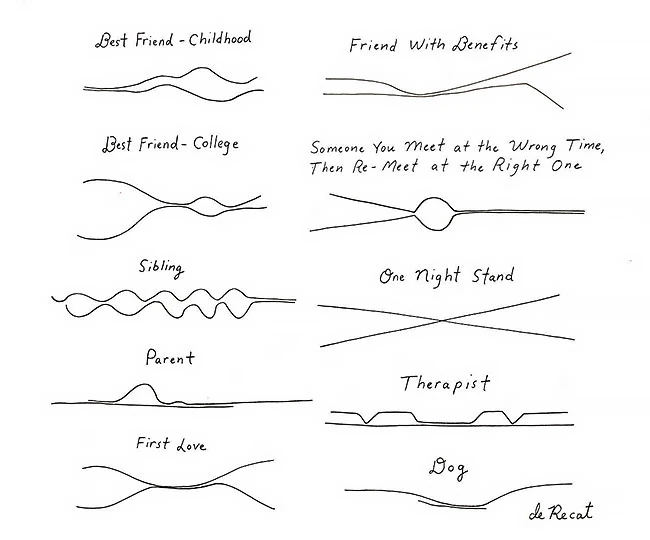 Best Friend - Childhood
Best Friend - College
Sibling
Parent
First Love
Friend With Benefits
Someone You Meet at the Wrong Time,
Then Re-Meet at the Right One
One Night Stand
Therapist
Dog
de Recat